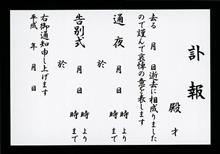 訃報
殿 才
去る 月 日逝去に相成りました
ので謹んで哀悼の意を表します
通夜 月 日 時より
時まで
於
告別式 月 日 時より
時まで
於
右御通知申し上げます
平成 年 月 日